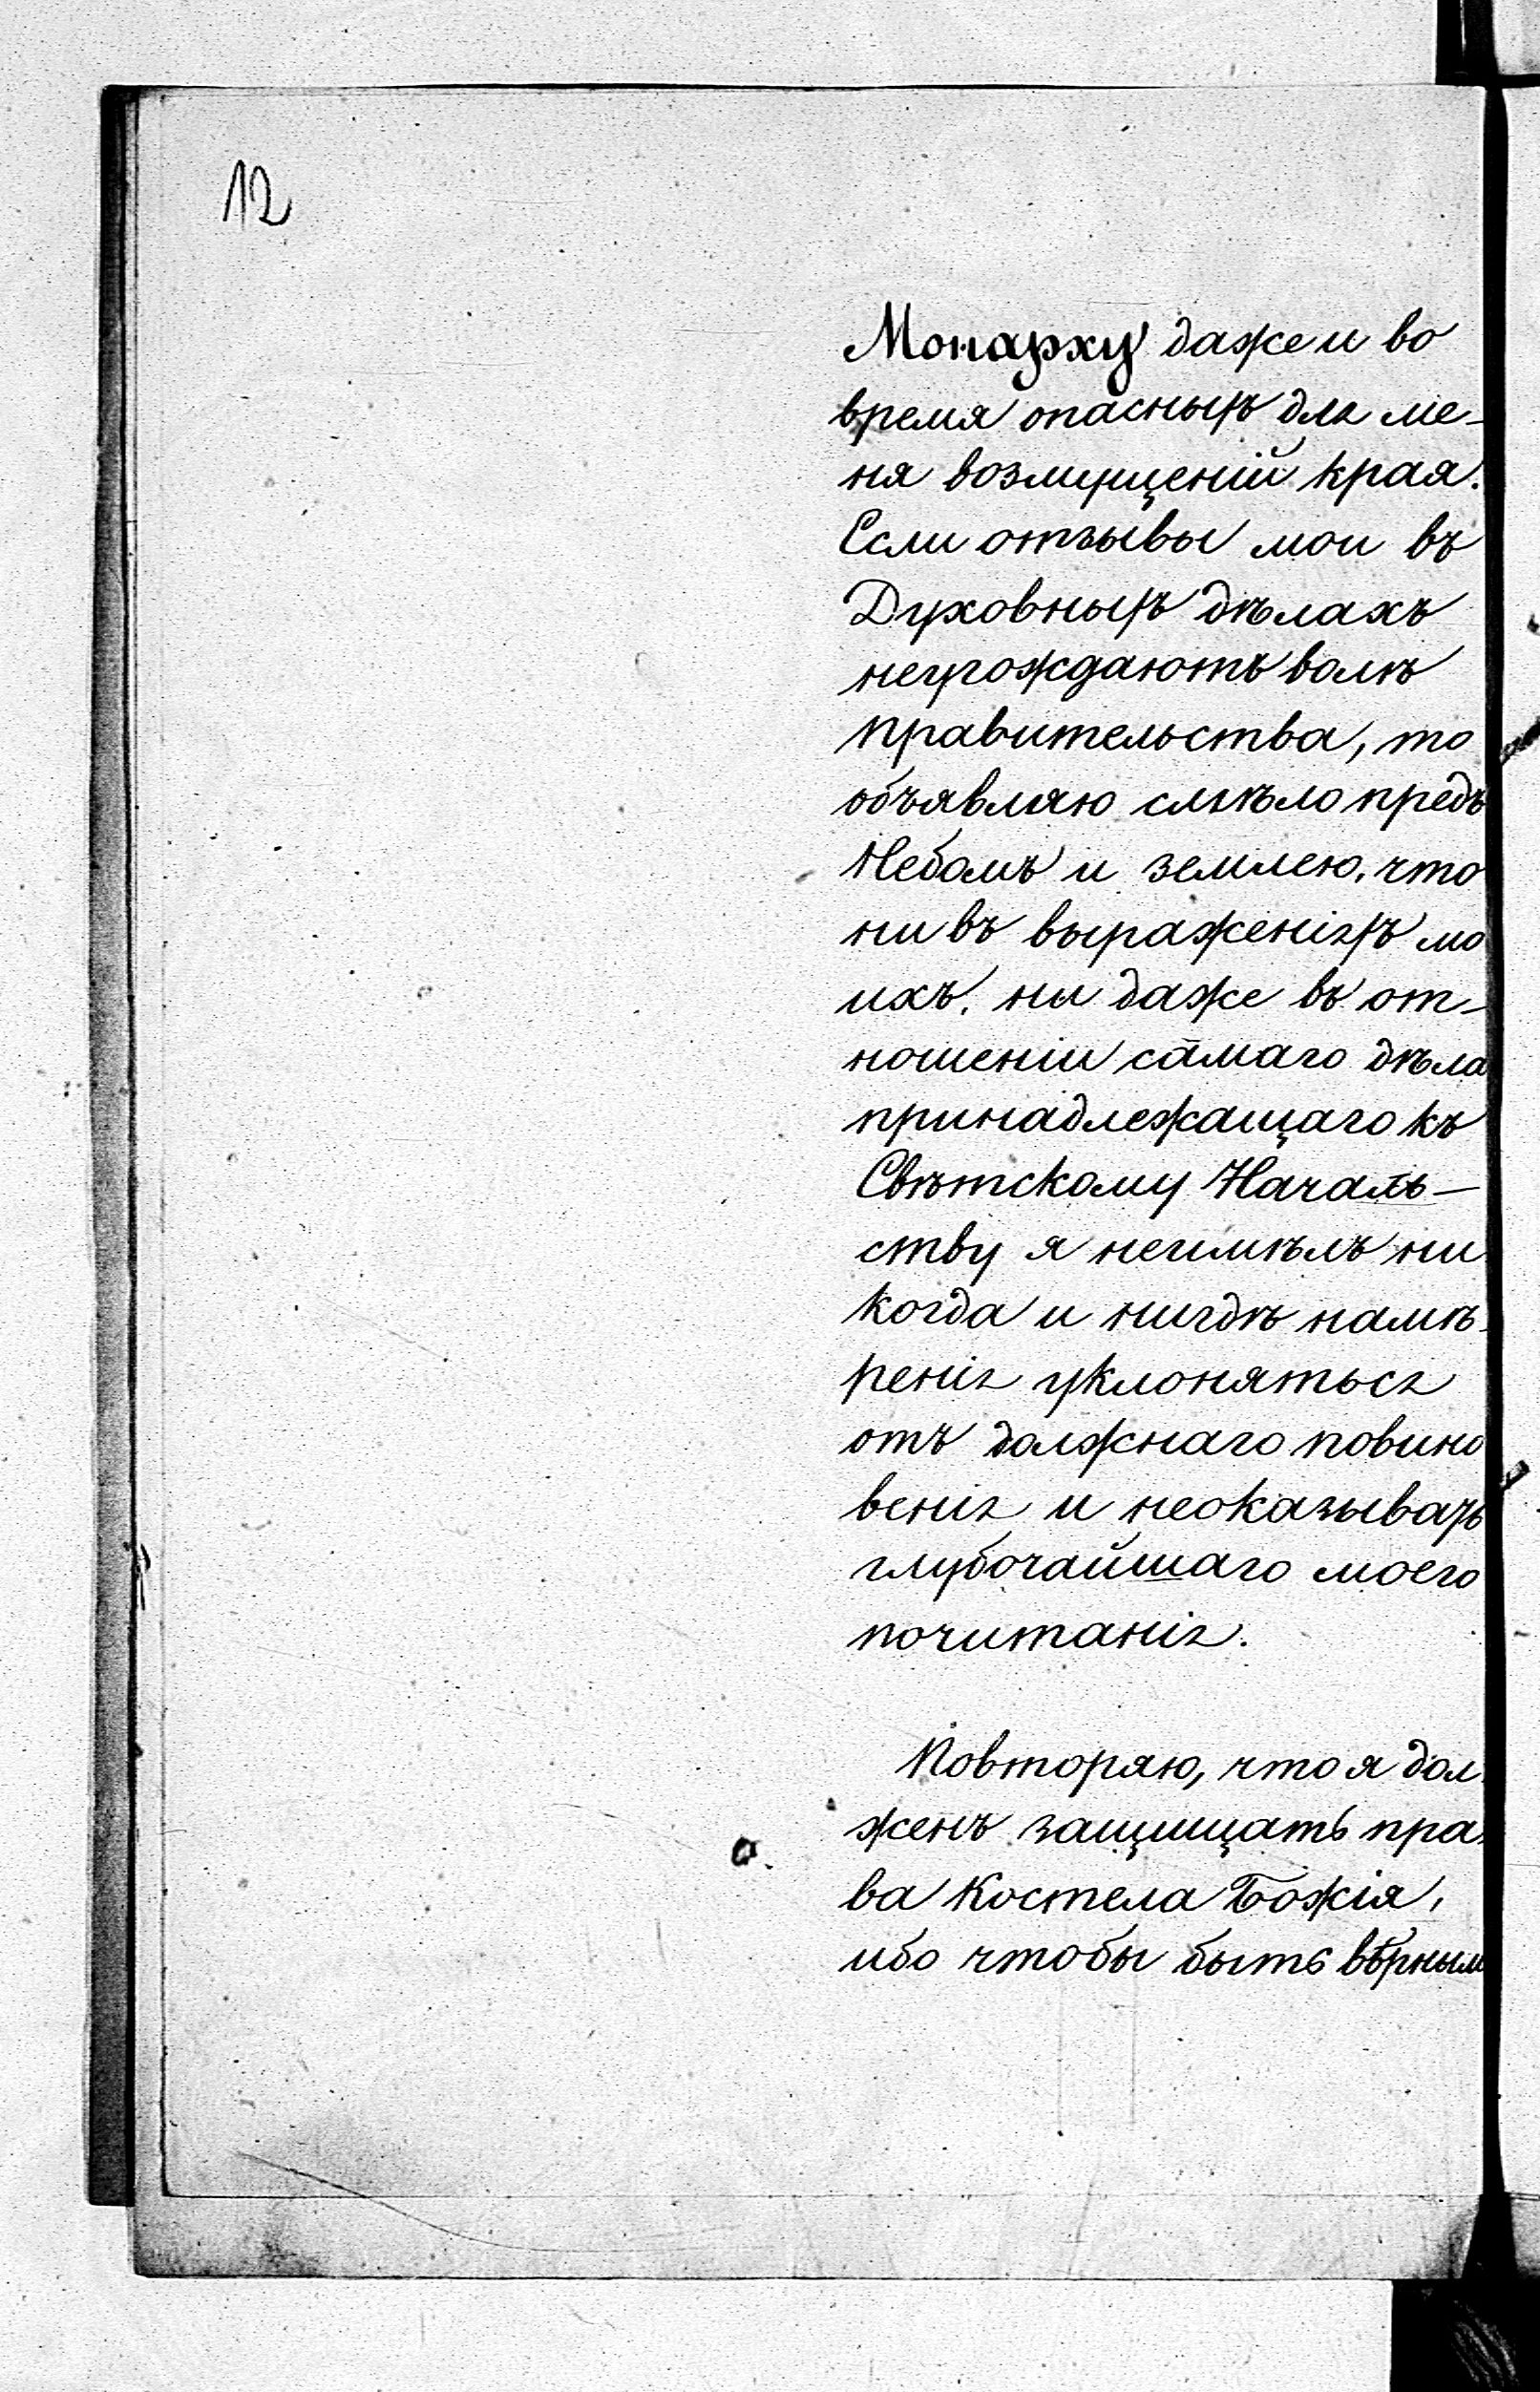 12
Монарху даже и во
время опасныхъ для ме-
ня возмущеній края.
Если отзывы мои въ
Духовныхъ дѣлахъ
неугождаютъ волѣ
правительства, то
объявляю смѣло предъ
Небомъ и землею, что
ни въ выраженіяхъ мо
ихъ, ни даже въ от-
ношеніи самаго дѣла
принадлежащаго къ
Свѣтскому Началь-
ству я неимѣлъ ни
когда и нигдѣ намѣ-
ренія уклоняться
отъ должнаго повино
венія и неоказывать
глубочайшаго моего
почитанія.
Повторяю, что я дол
женъ защищать пра
ва Костела Божія,
ибо чтобы быть вѣрным